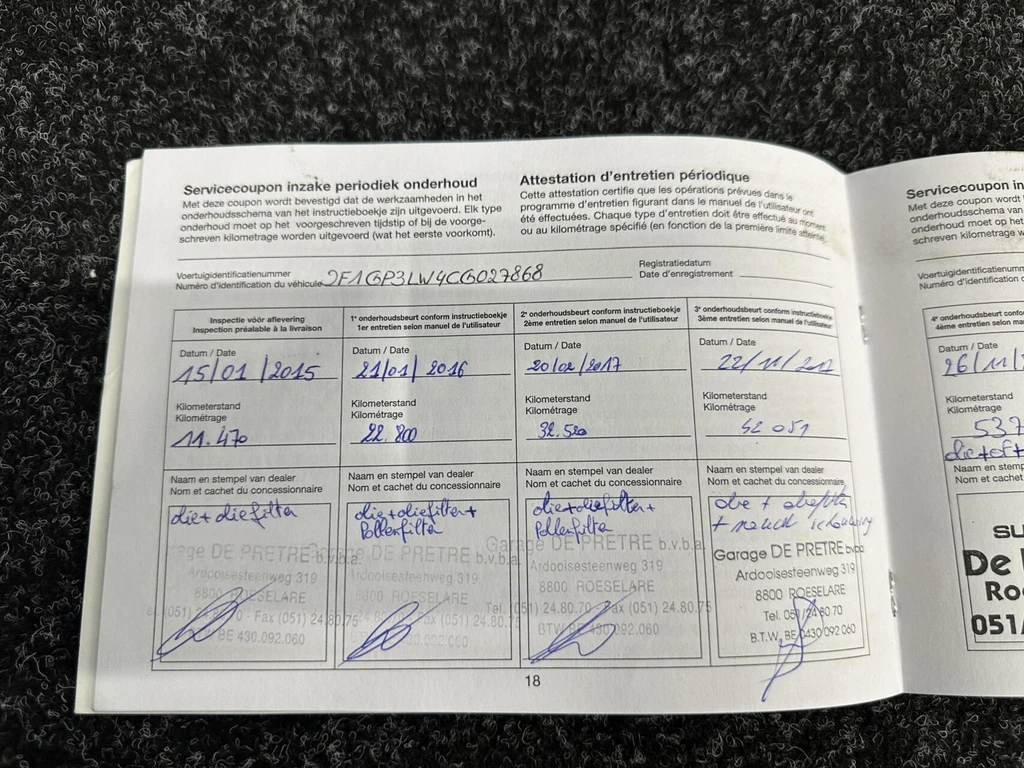 Servicecoupon inzake periodiek onderhoud
Met deze coupon wordt bevestigd dat de werkzaamheden in het
onderhoudsschema van het instructieboekje zijn uitgevoerd. Elk type
onderhoud moet op het voorgeschreven tijdstip of bij de voorge-
schreven kilometrage worden uitgevoerd (wat het eerste voorkomt).
Attestation d'entretien périodique
Cette attestation certifie que les opérations prévues dans le
programme d'entretien figurant dans le manuel de l'utilisateur ont
été effectuées. Chaque type d'entretien doit être effectué au moment
ou au kilométrage spécifié (en fonction de la première limite atteinte).
Voertuigidentificatienummer
Numéro d'identification du véhicule JF1GP3LW4CG027868
Registratiedatum
Date d'enregistrement
Inspectie vóór aflevering
Inspection préalable à la livraison
Datum / Date
15/01/2015
Kilometerstand
Kilométrage
11.470
Naam en stempel van dealer
Nom et cachet du concessionnaire
olie+oliefilter
Garage DE PRETRE b.v.b.a.
Ardooisesteenweg 319
8800 ROESELARE
Tel. (051) 24.80.70 - Fax (051) 24.80.75
BE 430.092.060
1e onderhoudsbeurt conform instructieboekje
1er entretien selon manuel de l'utilisateur
Datum / Date
21/01/2016
Kilometerstand
Kilométrage
22.800
Naam en stempel van dealer
Nom et cachet du concessionnaire
olie+oliefilter+
Pollenfilter
Garage DE PRETRE b.v.b.a.
Ardooisesteenweg 319
8800 ROESELARE
Fax (051) 24.80.75
2e onderhoudsbeurt conform instructieboekje
2ème entretien selon manuel de l'utilisateur
Datum / Date
20/02/2017
Kilometerstand
Kilométrage
32.520
Naam en stempel van dealer
Nom et cachet du concessionnaire
olie+oliefilter+
Pollenfilter
Garage DE PRETRE b.v.b.a.
Ardooisesteenweg 319
8800 ROESELARE
Tel. (051) 24.80.70 - Fax (051) 24.80.75
BTW BE 430.092.060
3e onderhoudsbeurt conform instructieboekje
3ème entretien selon manuel de l'utilisateur
Datum / Date
22/11/
Kilometerstand
Kilométrage
42 051
Naam en stempel van dealer
Nom et cachet du concessionnaire
olie + oliefilter
+
Garage DE PRETRE bvba
Ardooisesteenweg 319
8800 ROESELARE
Tel. 051/24 80 70
B.T.W. BE 0430 092 060
18
Servicecoupon in
Met deze coupon wordt
onderhoudsschema van
onderhoud moet op het
schreven kilometrage w
Voertuigidentificatienumm
Numéro d'identification d
4e onderhoudsbeurt confo
4ème entretien selon manu
Datum / Date
26/11/
Kilometerstand
Kilométrage
537
olie+
Naam en stemp
Nom et cachet
SU
De
Ro
051/